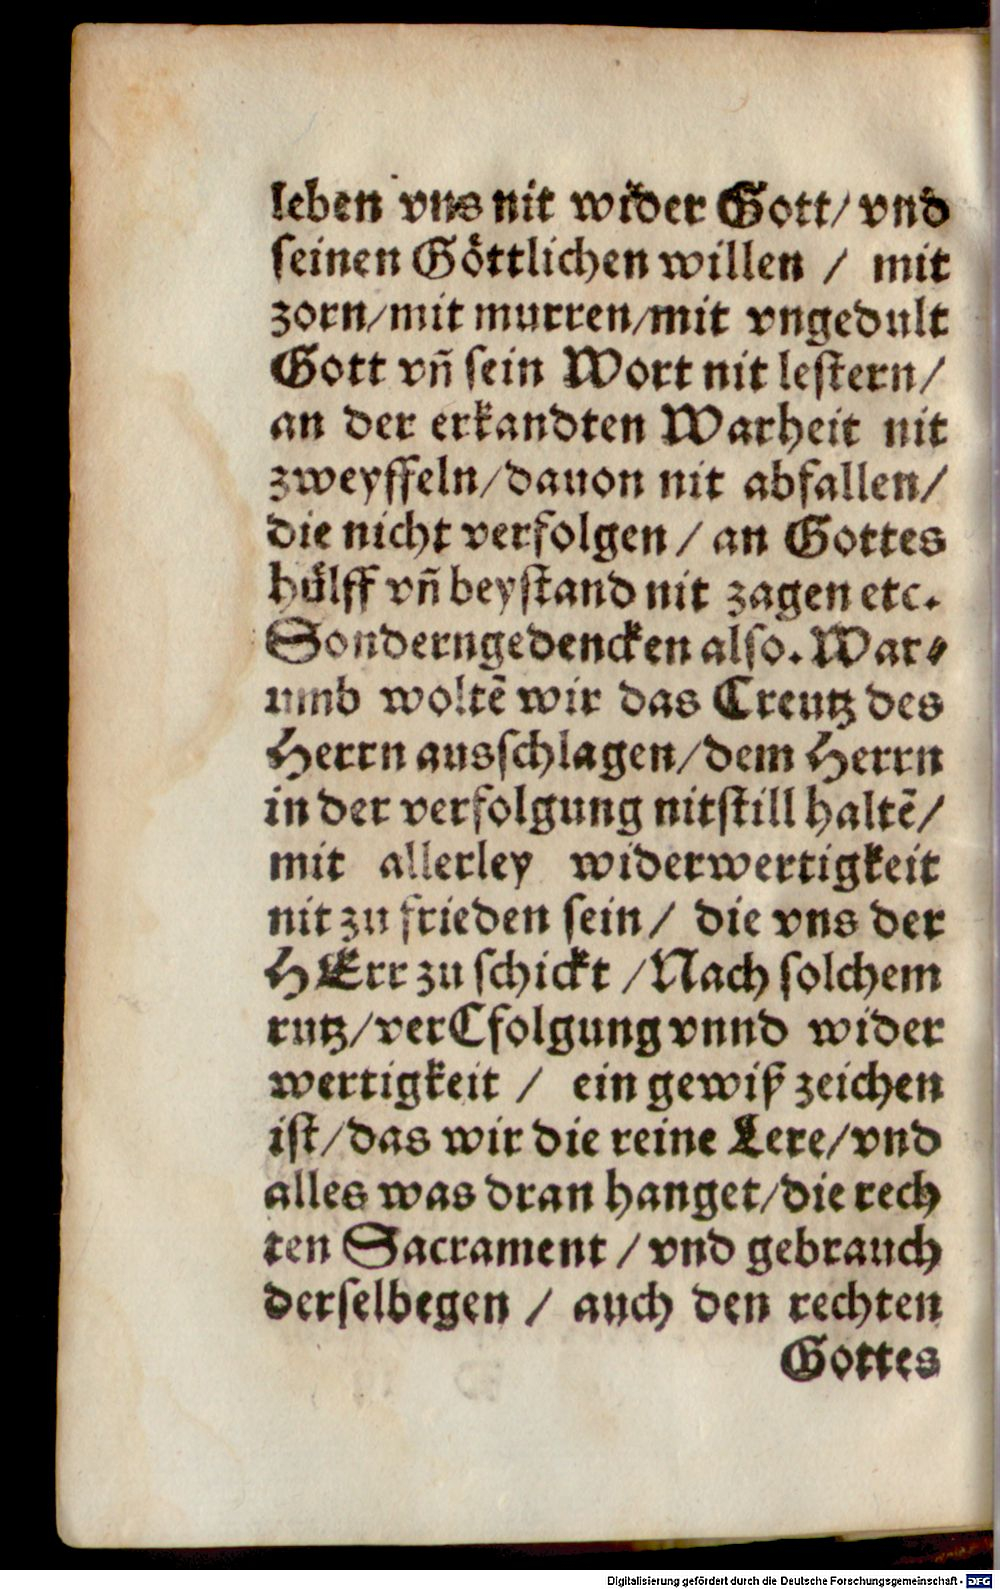 leben vns nit wider Gott/ vnd
seinen Göttlichen willen / mit
zorn/mit murren/mit vngedult
Gott vñ sein Wort nit lestern/
an der erkandten Warheit nit
zweyffeln/dauon nit abfallen/
die nicht verfolgen / an Gottes
hülff vñ beystand nit zagen etc.
Sonderngedencken also. War⸗
umb woltẽ wir das Creutz des
Herrn ausschlagen/dem Herrn
in der verfolgung nitstill haltẽ/
mit allerley widerwertigkeit
nit zu frieden sein / die vns der
HErr zu schickt /Nach solchem
rutz/verCfolgung vnnd wider
wertigkeit / ein gewiß zeichen
ist/das wir die reine Lere/vnd
alles was dran hanget/die rech
ten Sacrament / vnd gebrauch
derselbegen / auch den rechten
Gottes
Digitalisierung gefördert durch die Deutsche Forschungsgemeinschaft - DFG